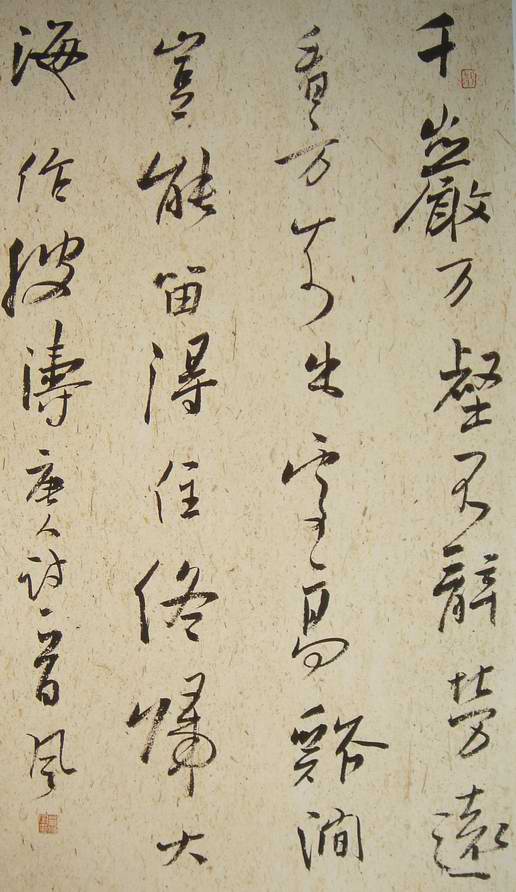 千巖万壑不辭劳遠
看方知出處高谿澗
豈能留得住終歸大
海作波濤唐人詩一首风